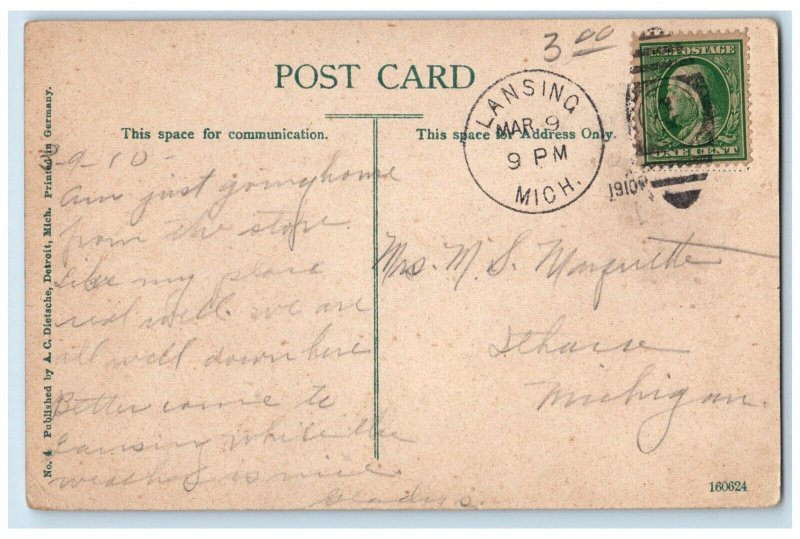 3 00
POST CARD
This space for communication.
This space for Address Only.
LANSING
MAR. 9
9 PM
MICH.
1910
U.S. POSTAGE
ONE CENT
3-9-10-
Am just going home
from the store.
Like my place
real well. we are
all well down here
Better come to
Lansing while the
weather is nice.
Gladys.
Mrs. M. S. Marquette
Ithaca
Michigan.
No. 4 Published by A. C. Dietsche, Detroit, Mich. Printed in Germany.
160624